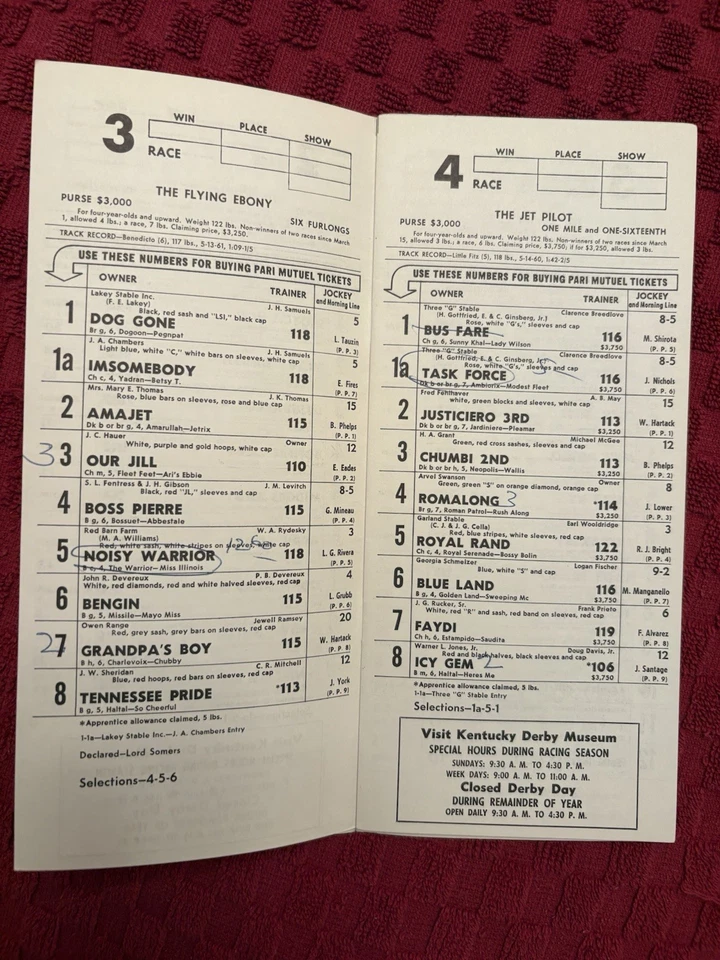 3
RACE
WIN PLACE SHOW
THE FLYING EBONY
PURSE $3,000 SIX FURLONGS
For four-year-olds and upward. Weight 122 lbs. Non-winners of two races since March
1, allowed 4 lbs.; a race, 7 lbs. Claiming price, $3,250.
TRACK RECORD—Benedicto (6), 117 lbs., 5-13-61, 1:09-1/5
USE THESE NUMBERS FOR BUYING PARI MUTUEL TICKETS
OWNER TRAINER JOCKEY and Morning Line
Lakey Stable Inc. J. H. Samuels 5
(F. E. Lakey)
Black, red sash and "LSI," black cap
1 DOG GONE 118 L. Tauzin
Br g, 6, Dogoon—Pognpat (P. P. 3)
J. A. Chambers J. H. Samuels 5
Light blue, white "C," white bars on sleeves, white cap
1a IMSOMEBODY 118 E. Fires
Ch c, 4, Yadran—Betsy T. (P. P. 7)
Mrs. Mary E. Thomas J. K. Thomas 15
Rose, blue bars on sleeves, rose and blue cap
2 AMAJET 115 B. Phelps
Dk b or br g, 4, Amarullah—Jetrix (P. P. 1)
J. C. Hauer Owner 12
White, purple and gold hoops, white cap
3 3 OUR JILL 110 E. Eades
Ch m, 5, Fleet Feet—Ari's Ebbie (P. P. 2)
S. L. Fentress & J. H. Gibson J. M. Levitch 8-5
Black, red "JL," sleeves and cap
4 BOSS PIERRE 115 G. Mineau
B g, 6, Bossuet—Abbestale (P. P. 4)
Red Barn Farm W. A. Rydesky 3
(M. A. Williams)
Red, white sash, white stripes on sleeves, same cap
5 NOISY WARRIOR 118 L. G. Rivera
B c, 4, The Warrior—Miss Illinois (P. P. 5)
John R. Devereux P. B. Devereux 4
White, red diamonds, red and white halved sleeves, red cap
6 BENGIN 115 L. Grubb
B g, 5, Missile—Mayo Miss (P. P. 6)
Owen Range Jewell Ramsey 20
Red, grey sash, grey bars on sleeves, red cap
2 7 GRANDPA'S BOY 115 W. Hartack
B h, 6, Charlevoix—Chubby (P. P. 8)
J. W. Sheridan C. R. Mitchell 12
Blue, red hoops, red bars on sleeves, red cap
8 TENNESSEE PRIDE *113 J. York
B g, 5, Haltal—So Cheerful (P. P. 9)
*Apprentice allowance claimed, 5 lbs.
1-1a—Lakey Stable Inc.—J. A. Chambers Entry
Declared—Lord Somers
Selections—4-5-6
4
RACE
WIN PLACE SHOW
THE JET PILOT
PURSE $3,000 ONE MILE and ONE-SIXTEENTH
For four-year-olds and upward. Weight 122 lbs. Non-winners of two races since March
15, allowed 3 lbs.; a race, 6 lbs. Claiming price, $3,750; if for $3,250, allowed 3 lbs.
TRACK RECORD—Little Fitz (5), 118 lbs., 5-14-60, 1:42-2/5
USE THESE NUMBERS FOR BUYING PARI MUTUEL TICKETS
OWNER TRAINER JOCKEY and Morning Line
Three "G" Stable Clarence Breedlove 8-5
(H. Gottfried, E. & C. Ginsberg, Jr.)
Rose, white "G's," sleeves and cap
1 BUS FARE 116 M. Shirota
Ch g, 6, Sunny Khal—Lady Wilson $3,750 (P. P. 5)
Three "G" Stable Clarence Breedlove 8-5
(H. Gottfried, E. & C. Ginsberg, Jr.)
Rose, white "G's," sleeves and cap
1a TASK FORCE 116 J. Nichols
Dk b or br g, 7, Ambiorix—Modest Fleet $3,750 (P. P. 6)
Fred Fehlhaver A. B. May 15
white, green blocks and sleeves, white cap
2 JUSTICIERO 3RD 113 W. Hartack
Dk b or br g, 7, Jardiniere—Pleamar $3,250 (P. P. 1)
H. A. Grant Michael McGee 12
Green, red cross sashes, sleeves and cap
3 CHUMBI 2ND 113 B. Phelps
Dk b or br h, 5, Neopolis—Wallis $3,250 (P. P. 2)
Arvel Swanson Owner 8
Green, green "S" on orange diamond, orange cap
4 ROMALONG 3 *114 J. Lower
Br g, 7, Roman Patrol—Rush Along $3,750 (P. P. 3)
Garland Stable Earl Wooldridge 3
(C. J. & J. G. Cella)
Red, blue stripes, white sleeves, red cap
5 ROYAL RAND 122 R. J. Bright
Ch c, 4, Royal Serenade—Bossy Bolin $3,750 (P. P. 4)
Georgia Schmelzer Logan Fischer 9-2
Blue, white "S" and cap
6 BLUE LAND 116 M. Manganello
B g, 4, Golden Land—Sweeping Mc $3,750 (P. P. 7)
J. G. Rucker, Sr. Frank Prieto 6
White, red "R" and sash, red band on sleeves, red cap
7 FAYDI 119 F. Alvarez
Ch h, 6, Estampido—Saudita $3,750 (P. P. 8)
Warner L. Jones, Jr. Doug Davis, Jr. 12
Red and black halves, black sleeves and cap
8 ICY GEM 2 *106 J. Santage
B m, 6, Haltal—Heres Me $3,750 (P. P. 9)
*Apprentice allowance claimed, 5 lbs.
1-1a—Three "G" Stable Entry
Selections—1a-5-1
Visit Kentucky Derby Museum
SPECIAL HOURS DURING RACING SEASON
SUNDAYS: 9:30 A. M. TO 4:30 P. M.
WEEK DAYS: 9:00 A. M. TO 11:00 A. M.
Closed Derby Day
DURING REMAINDER OF YEAR
OPEN DAILY 9:30 A. M. TO 4:30 P. M.